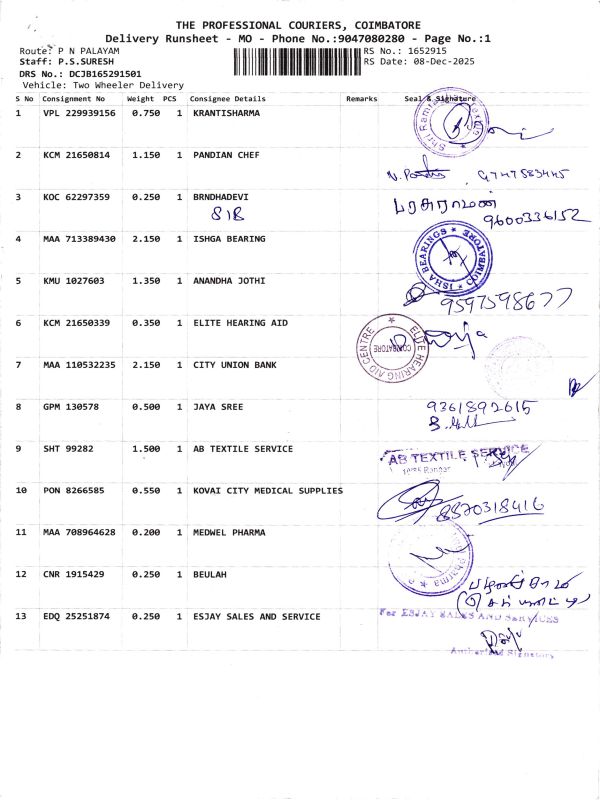 THE PROFESSIONAL COURIERS, COIMBATORE
Delivery Runsheet - MO - Phone No.:9047080280 - Page No.:1
Route: P N PALAYAM RS No.: 1652915
Staff: P.S.SURESH RS Date: 08-Dec-2025
DRS No.: DCJB165291501
Vehicle: Two Wheeler Delivery
S No Consignment No Weight PCS Consignee Details Remarks Seal & Signature
1 VPL 229939156 0.750 1 KRANTISHARMA
2 KCM 21650814 1.150 1 PANDIAN CHEF
9747583445
3 KOC 62297359 0.250 1 BRNDHADEVI
பரசுராமன்
9600336152
4 MAA 713389430 2.150 1 ISHGA BEARING
ISHA BEARINGS * COIMBATORE *
5 KMU 1027603 1.350 1 ANANDHA JOTHI
9597598677
6 KCM 21650339 0.350 1 ELITE HEARING AID
ELITE HEARING AID CENTRE *
COIMBATORE
7 MAA 110532235 2.150 1 CITY UNION BANK
8 GPM 130578 0.500 1 JAYA SREE
9361892615
9 SHT 99282 1.500 1 AB TEXTILE SERVICE
AB TEXTILE SERVICE
10 PON 8266585 0.550 1 KOVAI CITY MEDICAL SUPPLIES
8870318416
11 MAA 708964628 0.200 1 MEDWEL PHARMA
12 CNR 1915429 0.250 1 BEULAH
13 EDQ 25251874 0.250 1 ESJAY SALES AND SERVICE
For ESJAY SALES AND SERVICES
Authorised Signatory